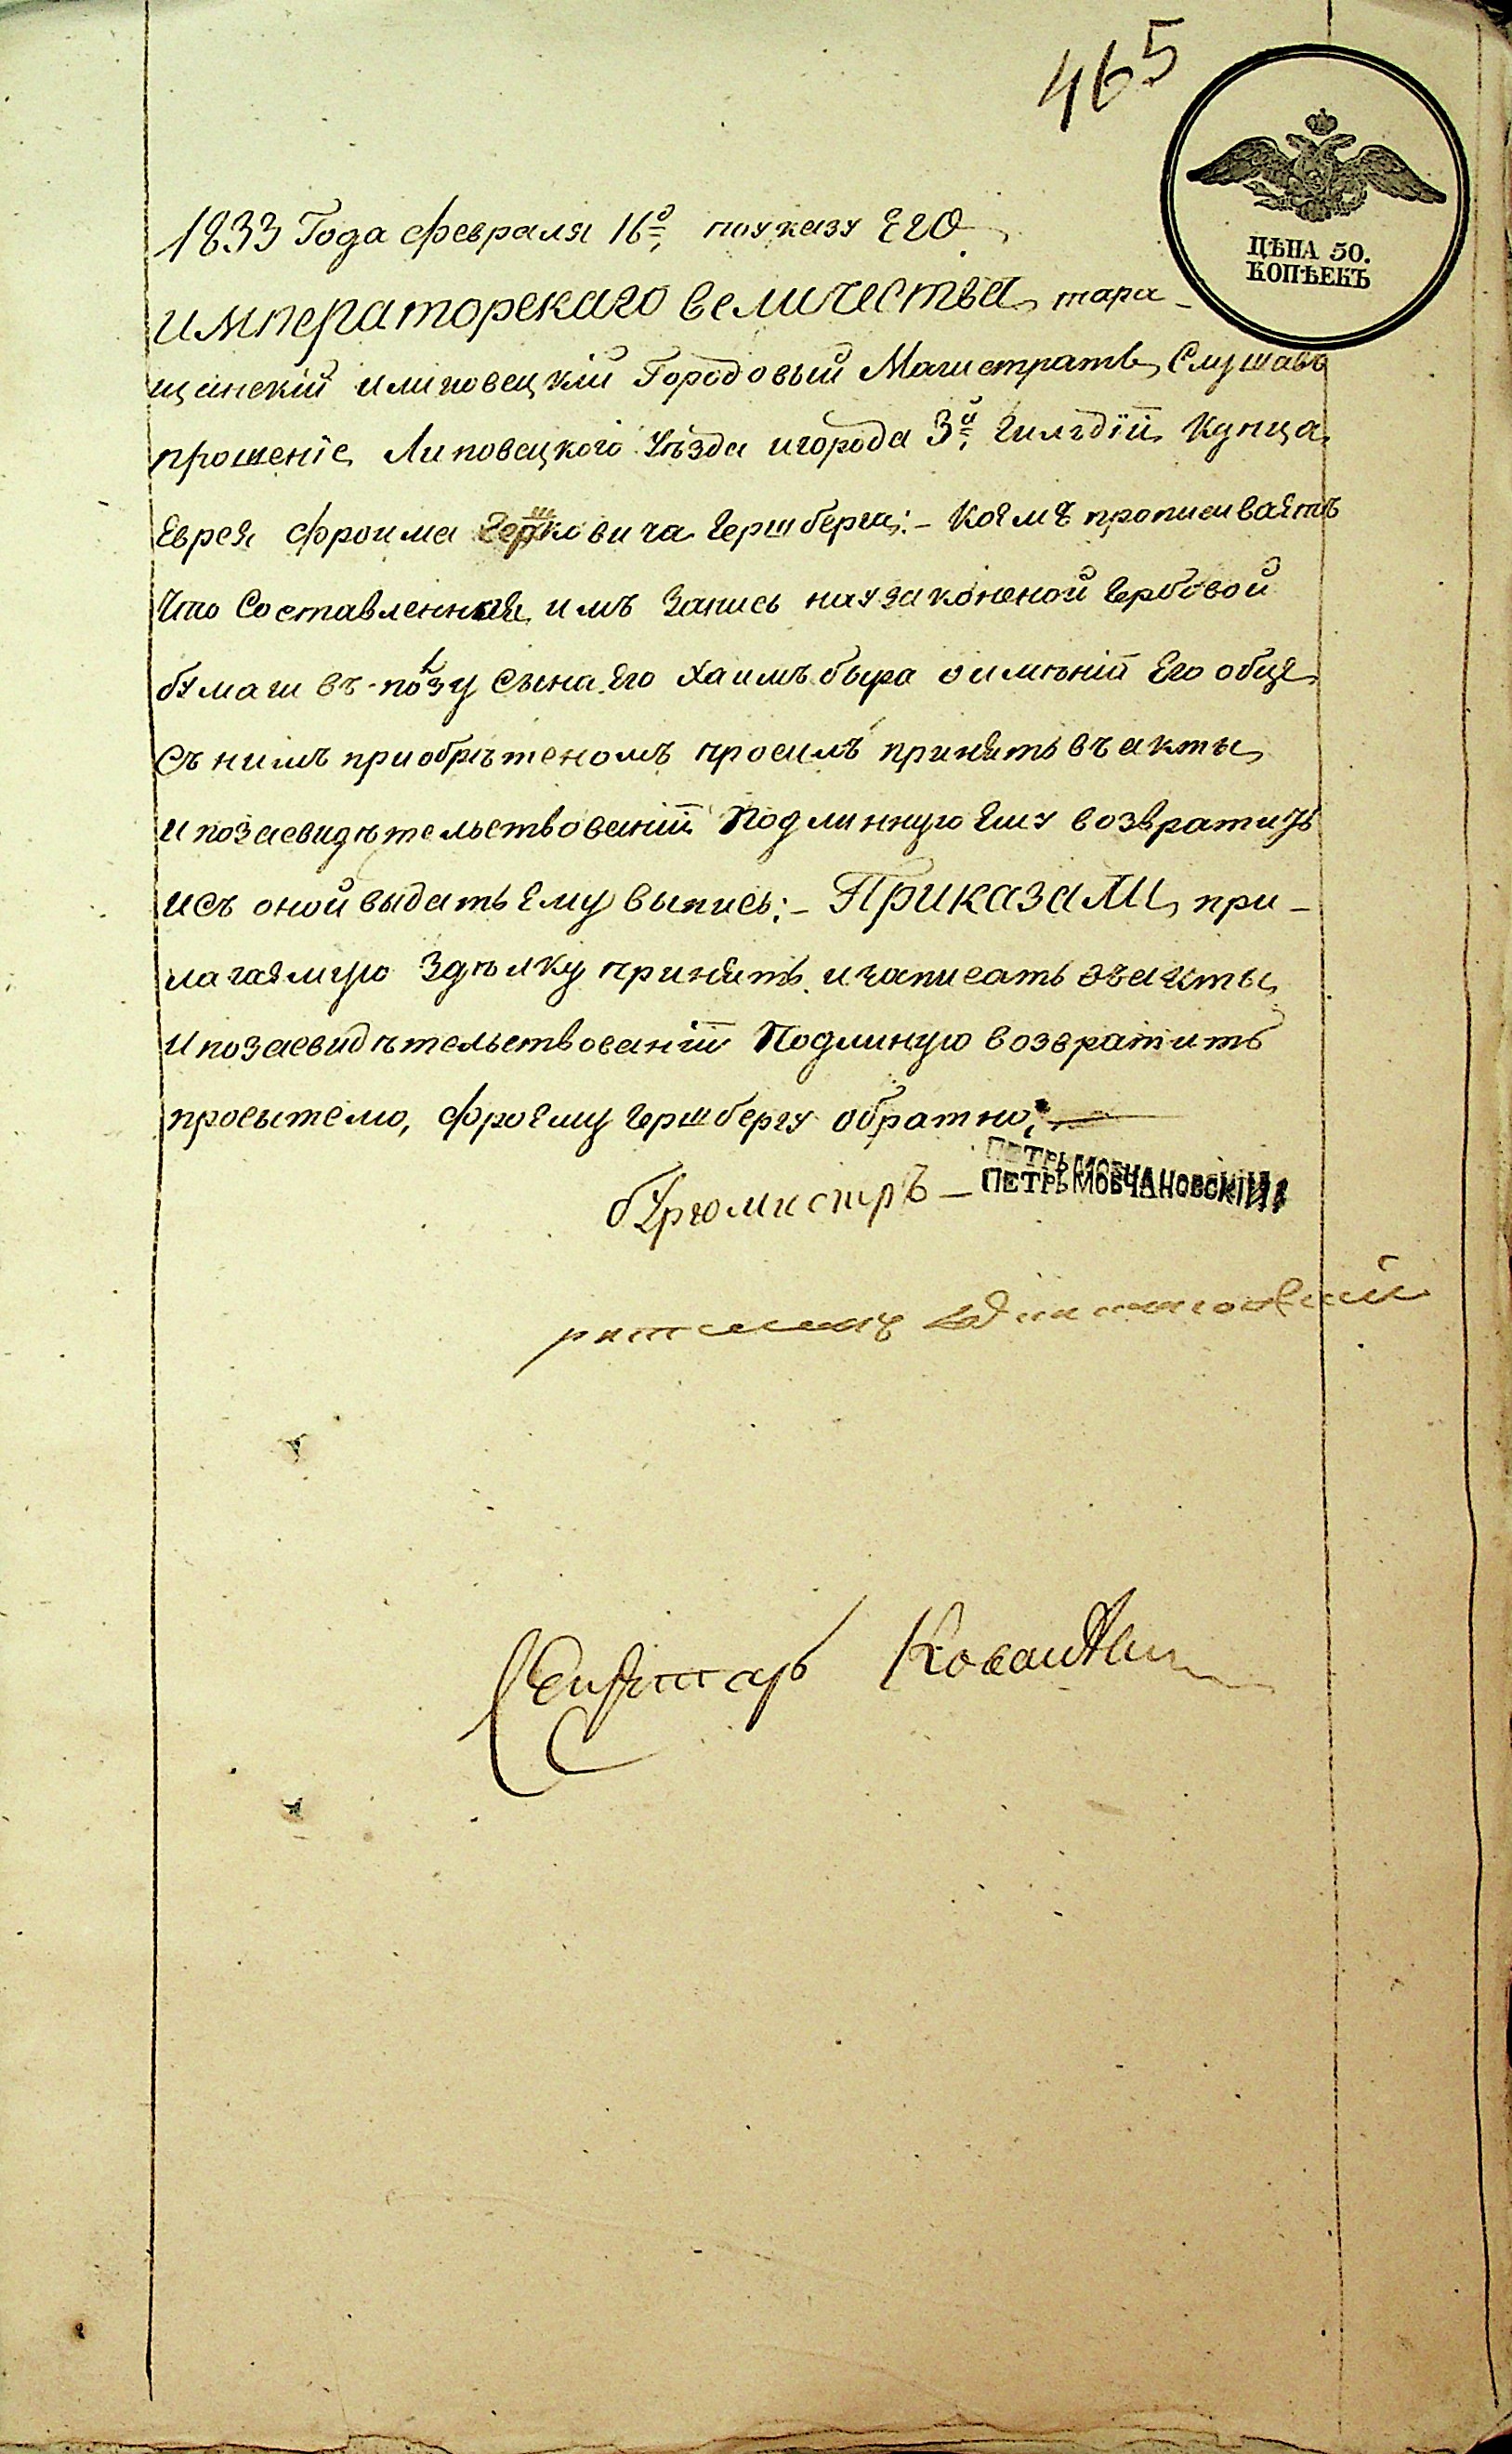 465
ЦѢНА 50.
КОПѢЕКЪ
1833 Года февраля 16го, по указу ЕГО
императорскаго величества, тара-
щанскій и липовецкій Городовый Магистратъ, Слушавъ
прошеніе Липовецкого Уѣзда и города 3й, Гилдіи, Купца
Еврея Фроима Гершковича Гершберга:- коемъ прописиваетъ
что Составленная имъ Запись на узаконеной гербовой
бумаги въ ползу Сына Его Хаимъ бера о имѣніи Его обще
съ нимъ приобрѣтеномъ просилъ принять въ акты,
и по засвидѣтельствованіи подлинную Ему возвратить
и съ оной выдать Ему выпись;- Приказали, при-
лагаемую Здѣлку принять и записать въ акты,
и по засвидѣтельствованіи Подлиную возвратить
просытелю, Фроиму Гершбергу обратно;-
бургомистръ - ПЕТРЪ МОВЧАНОВСКІЙ
ратманъ
Секретарь